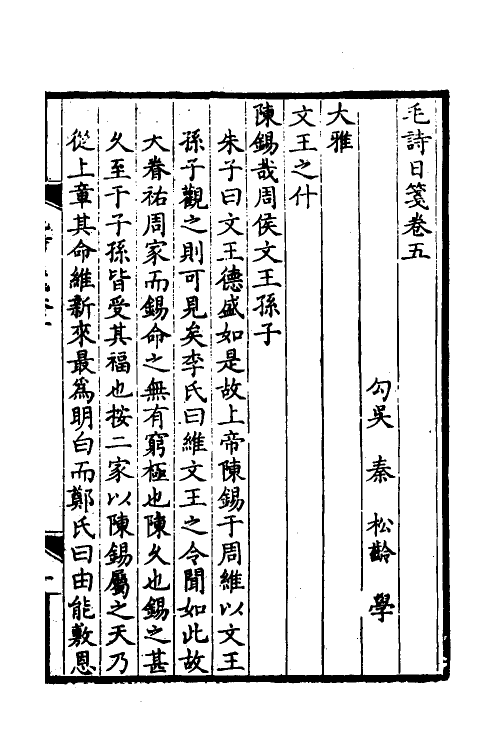 毛詩日箋卷五
勾吳 秦 松齡 學
大雅
文王之什
陳錫哉周侯文王孫子
朱子曰文王德盛如是故上帝陳錫于周維以文王
孫子觀之則可見矣李氏曰維文王之令聞如此故
天眷祐周家而錫命之無有窮極也陳久也錫之甚
久至于子孫皆受其福也按二家以陳錫屬之天乃
從上章其命維新來最為明白而鄭氏曰由能敷恩